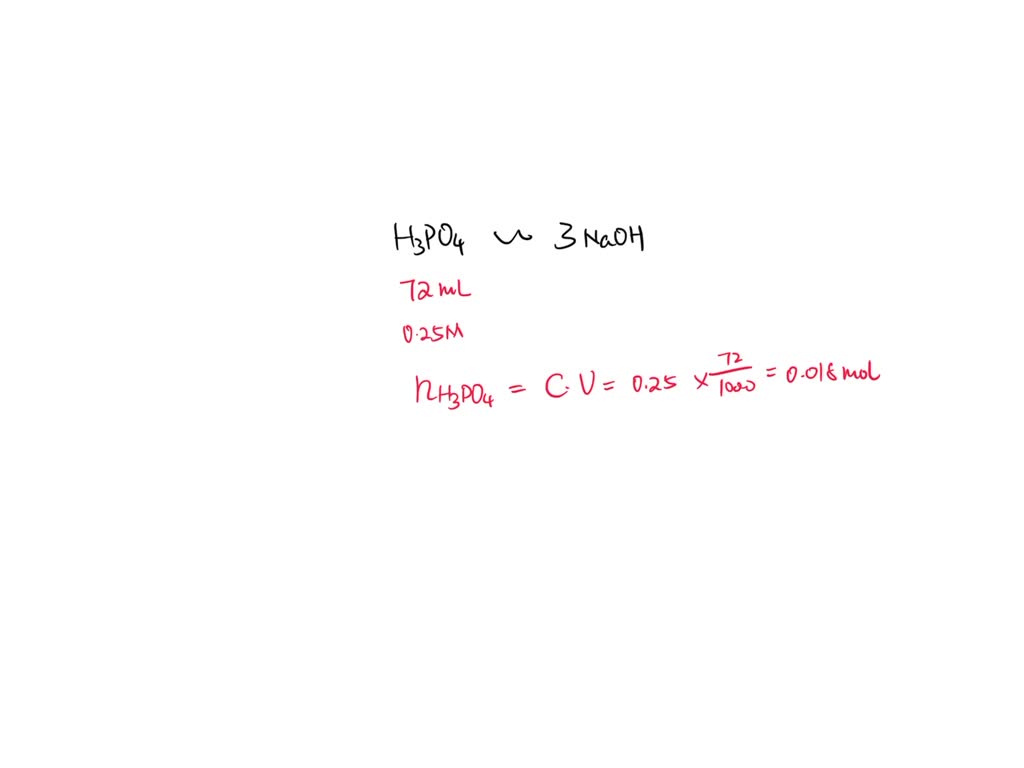 H₃PO₄ ~ 3 NaOH
72 mL
0.25M
nH₃PO₄ = C·V = 0.25 × 72/1000 = 0.018 mol